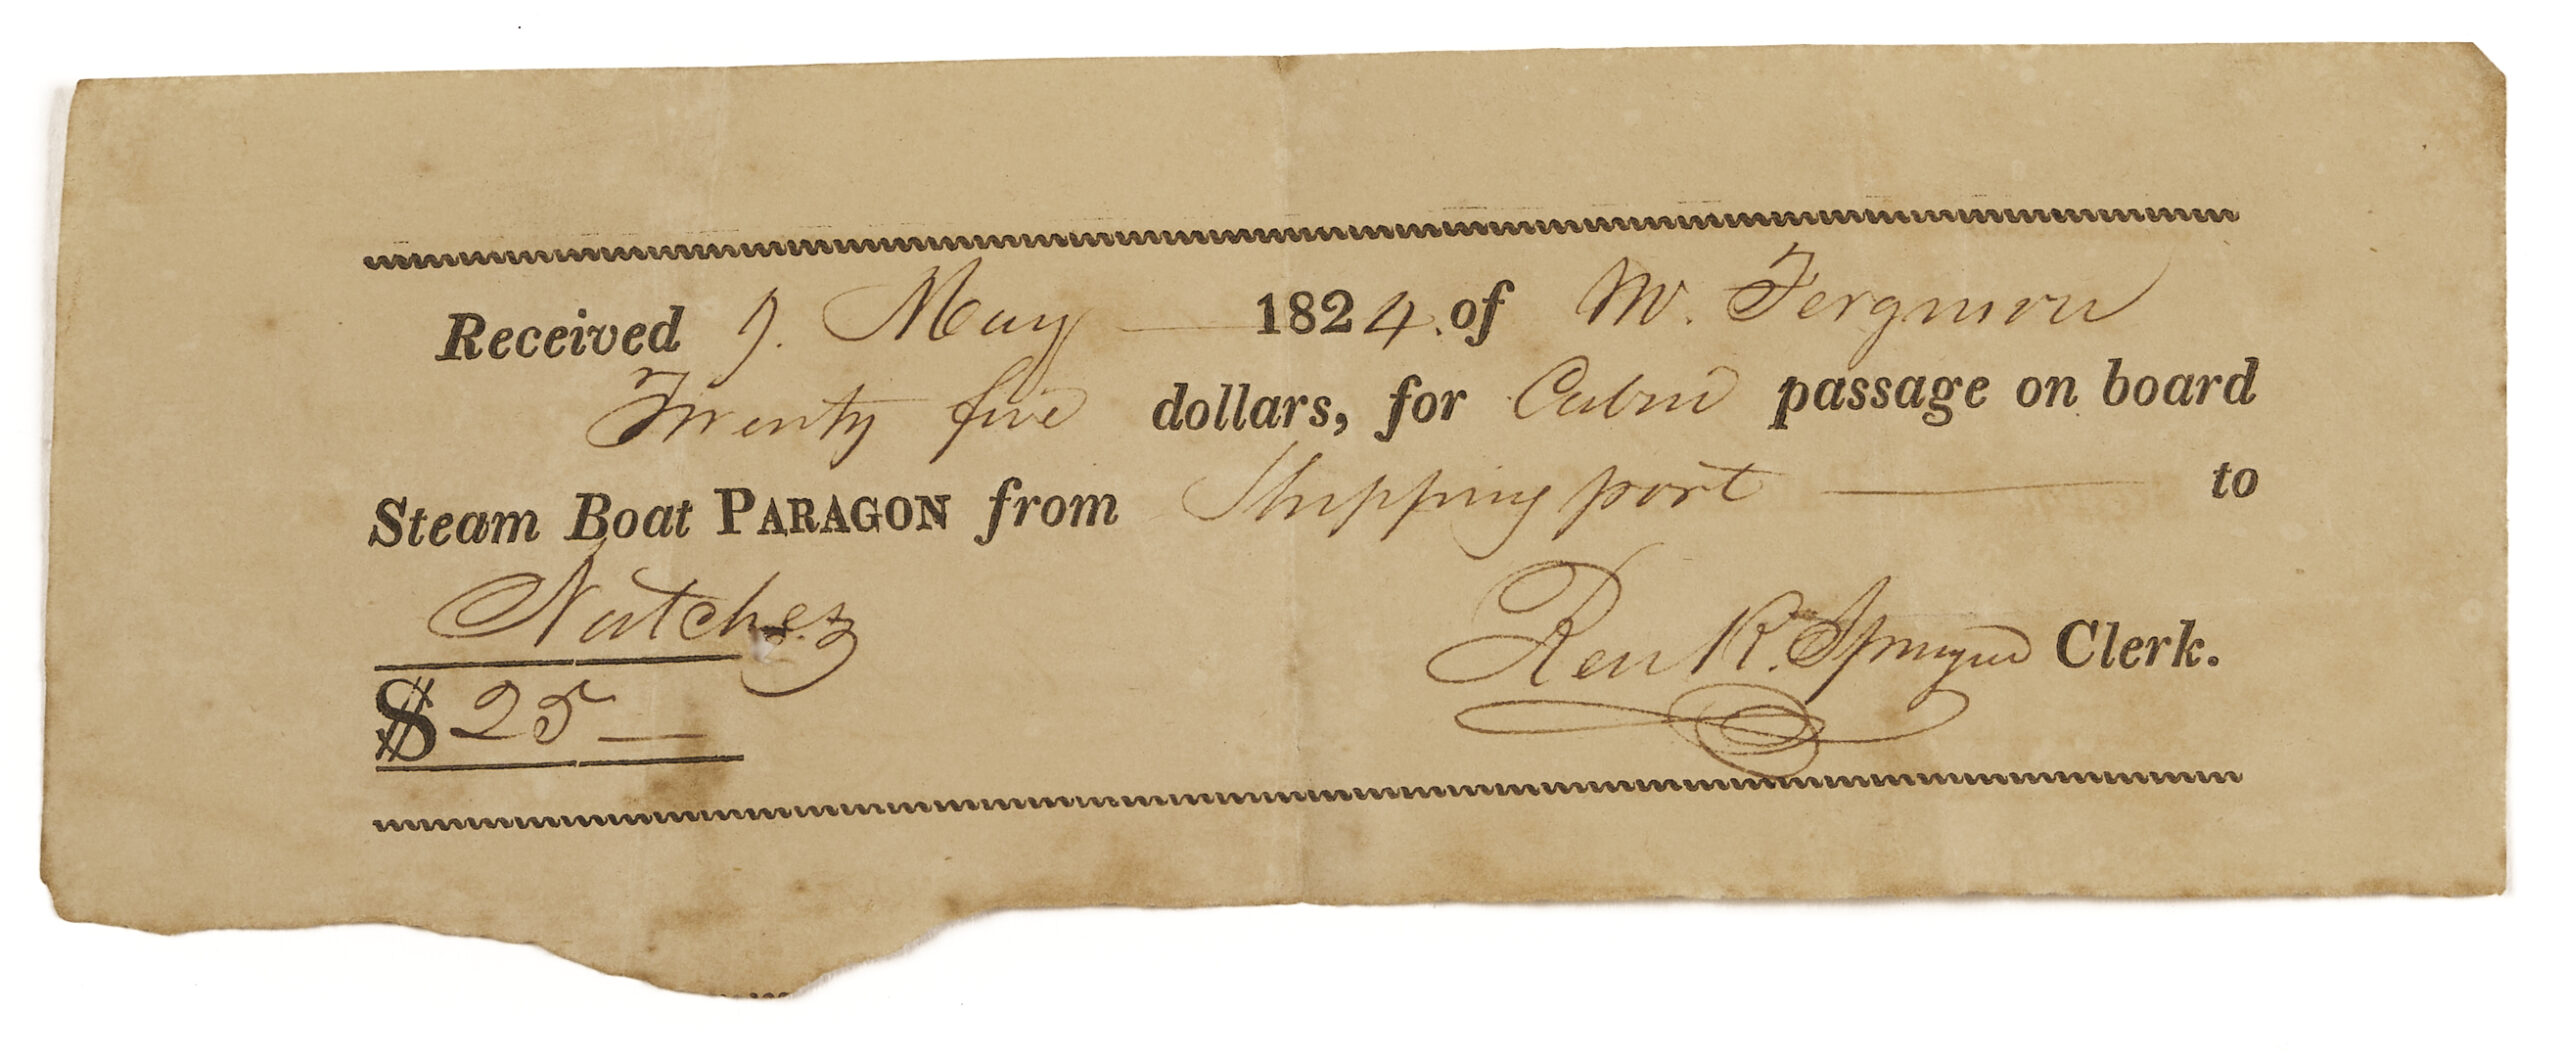 Received May 1824. of Ferguson
Twenty five dollars, for Cabin passage on board
Steam Boat PARAGON from Shippingport to
Natchez
R. Sprague Clerk.
$ 25